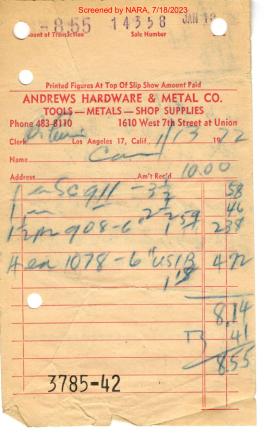 Screened by NARA, 7/18/2023
-8.55 14358 JAN 13
Amount of Transaction Sale Number
Printed Figures At Top Of Slip Show Amount Paid
ANDREWS HARDWARE & METAL CO.
TOOLS — METALS — SHOP SUPPLIES
Phone 483-8110 1610 West 7th Street at Union
Clerk Los Angeles 17, Calif., 1/13 1972
Name
Address Am't Rec'd 10.00
1 ea SC 911 - 53
1 46
1 908-6" 238
4 ea 1078-6" 472
8.14
41
8.55
3785-42